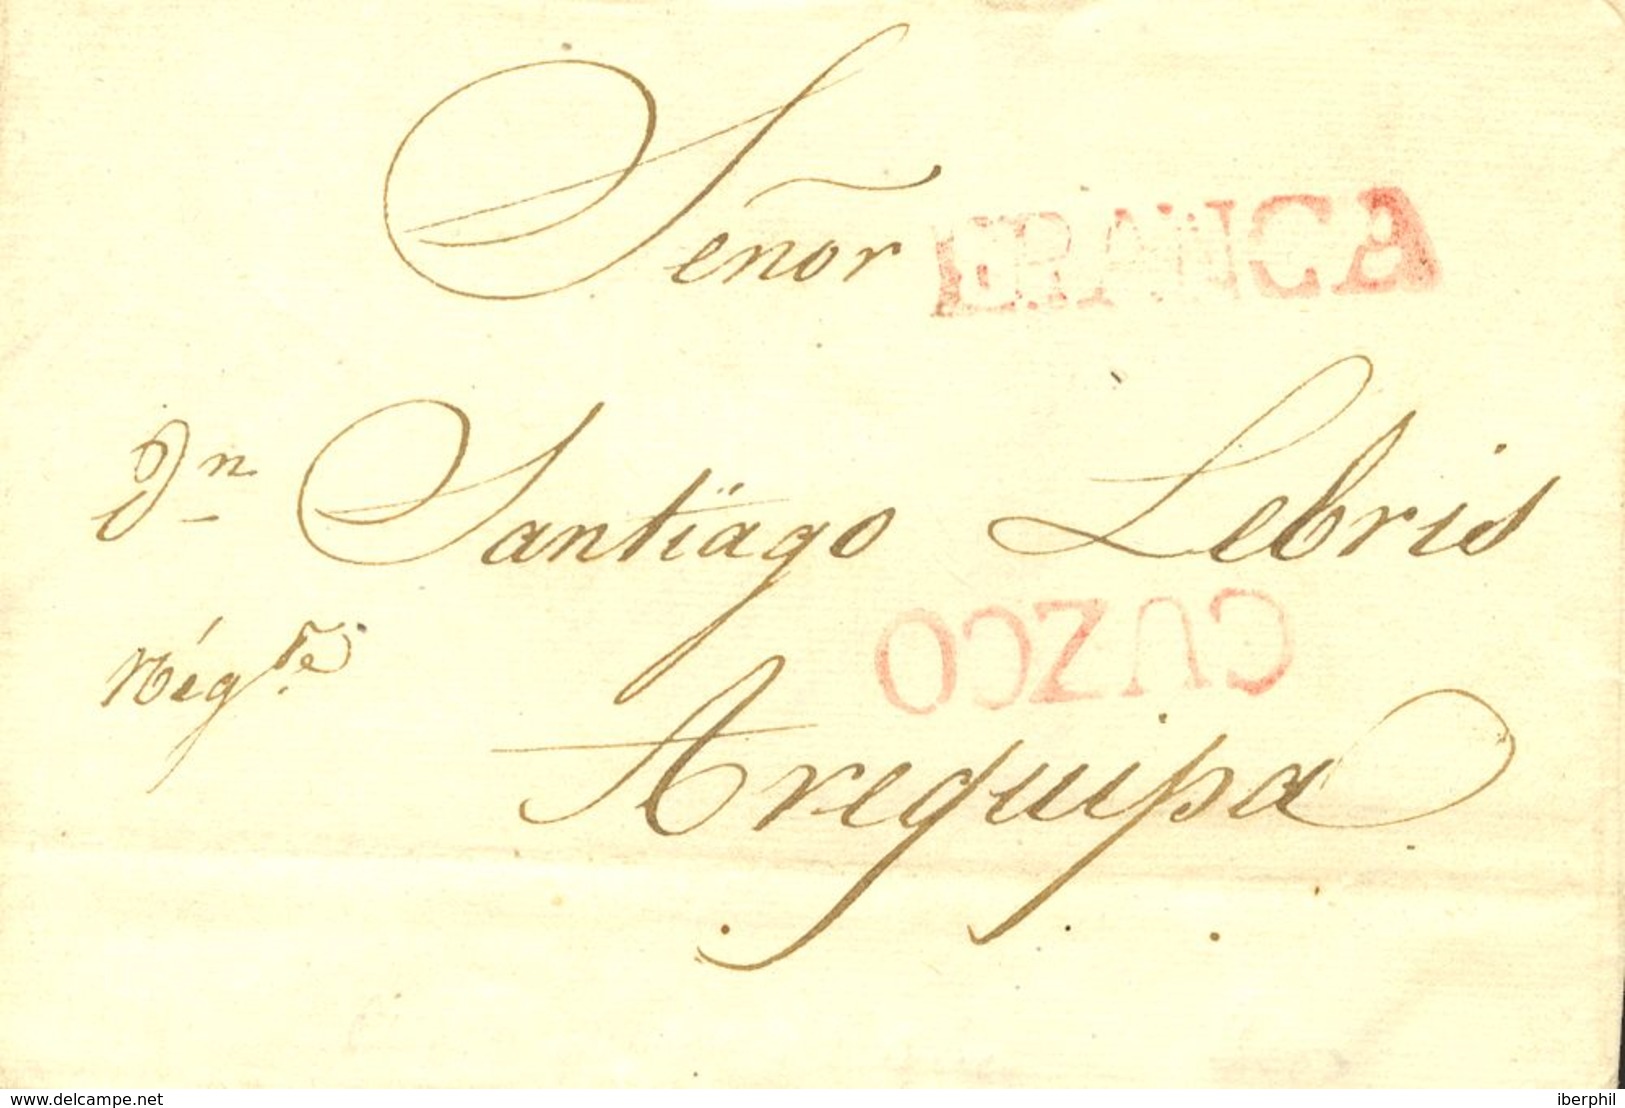 Señor FRANCA
Dn Santiago Lebris
CUZCO
Négte
Arequipa
www.delcampe.net
iberphil